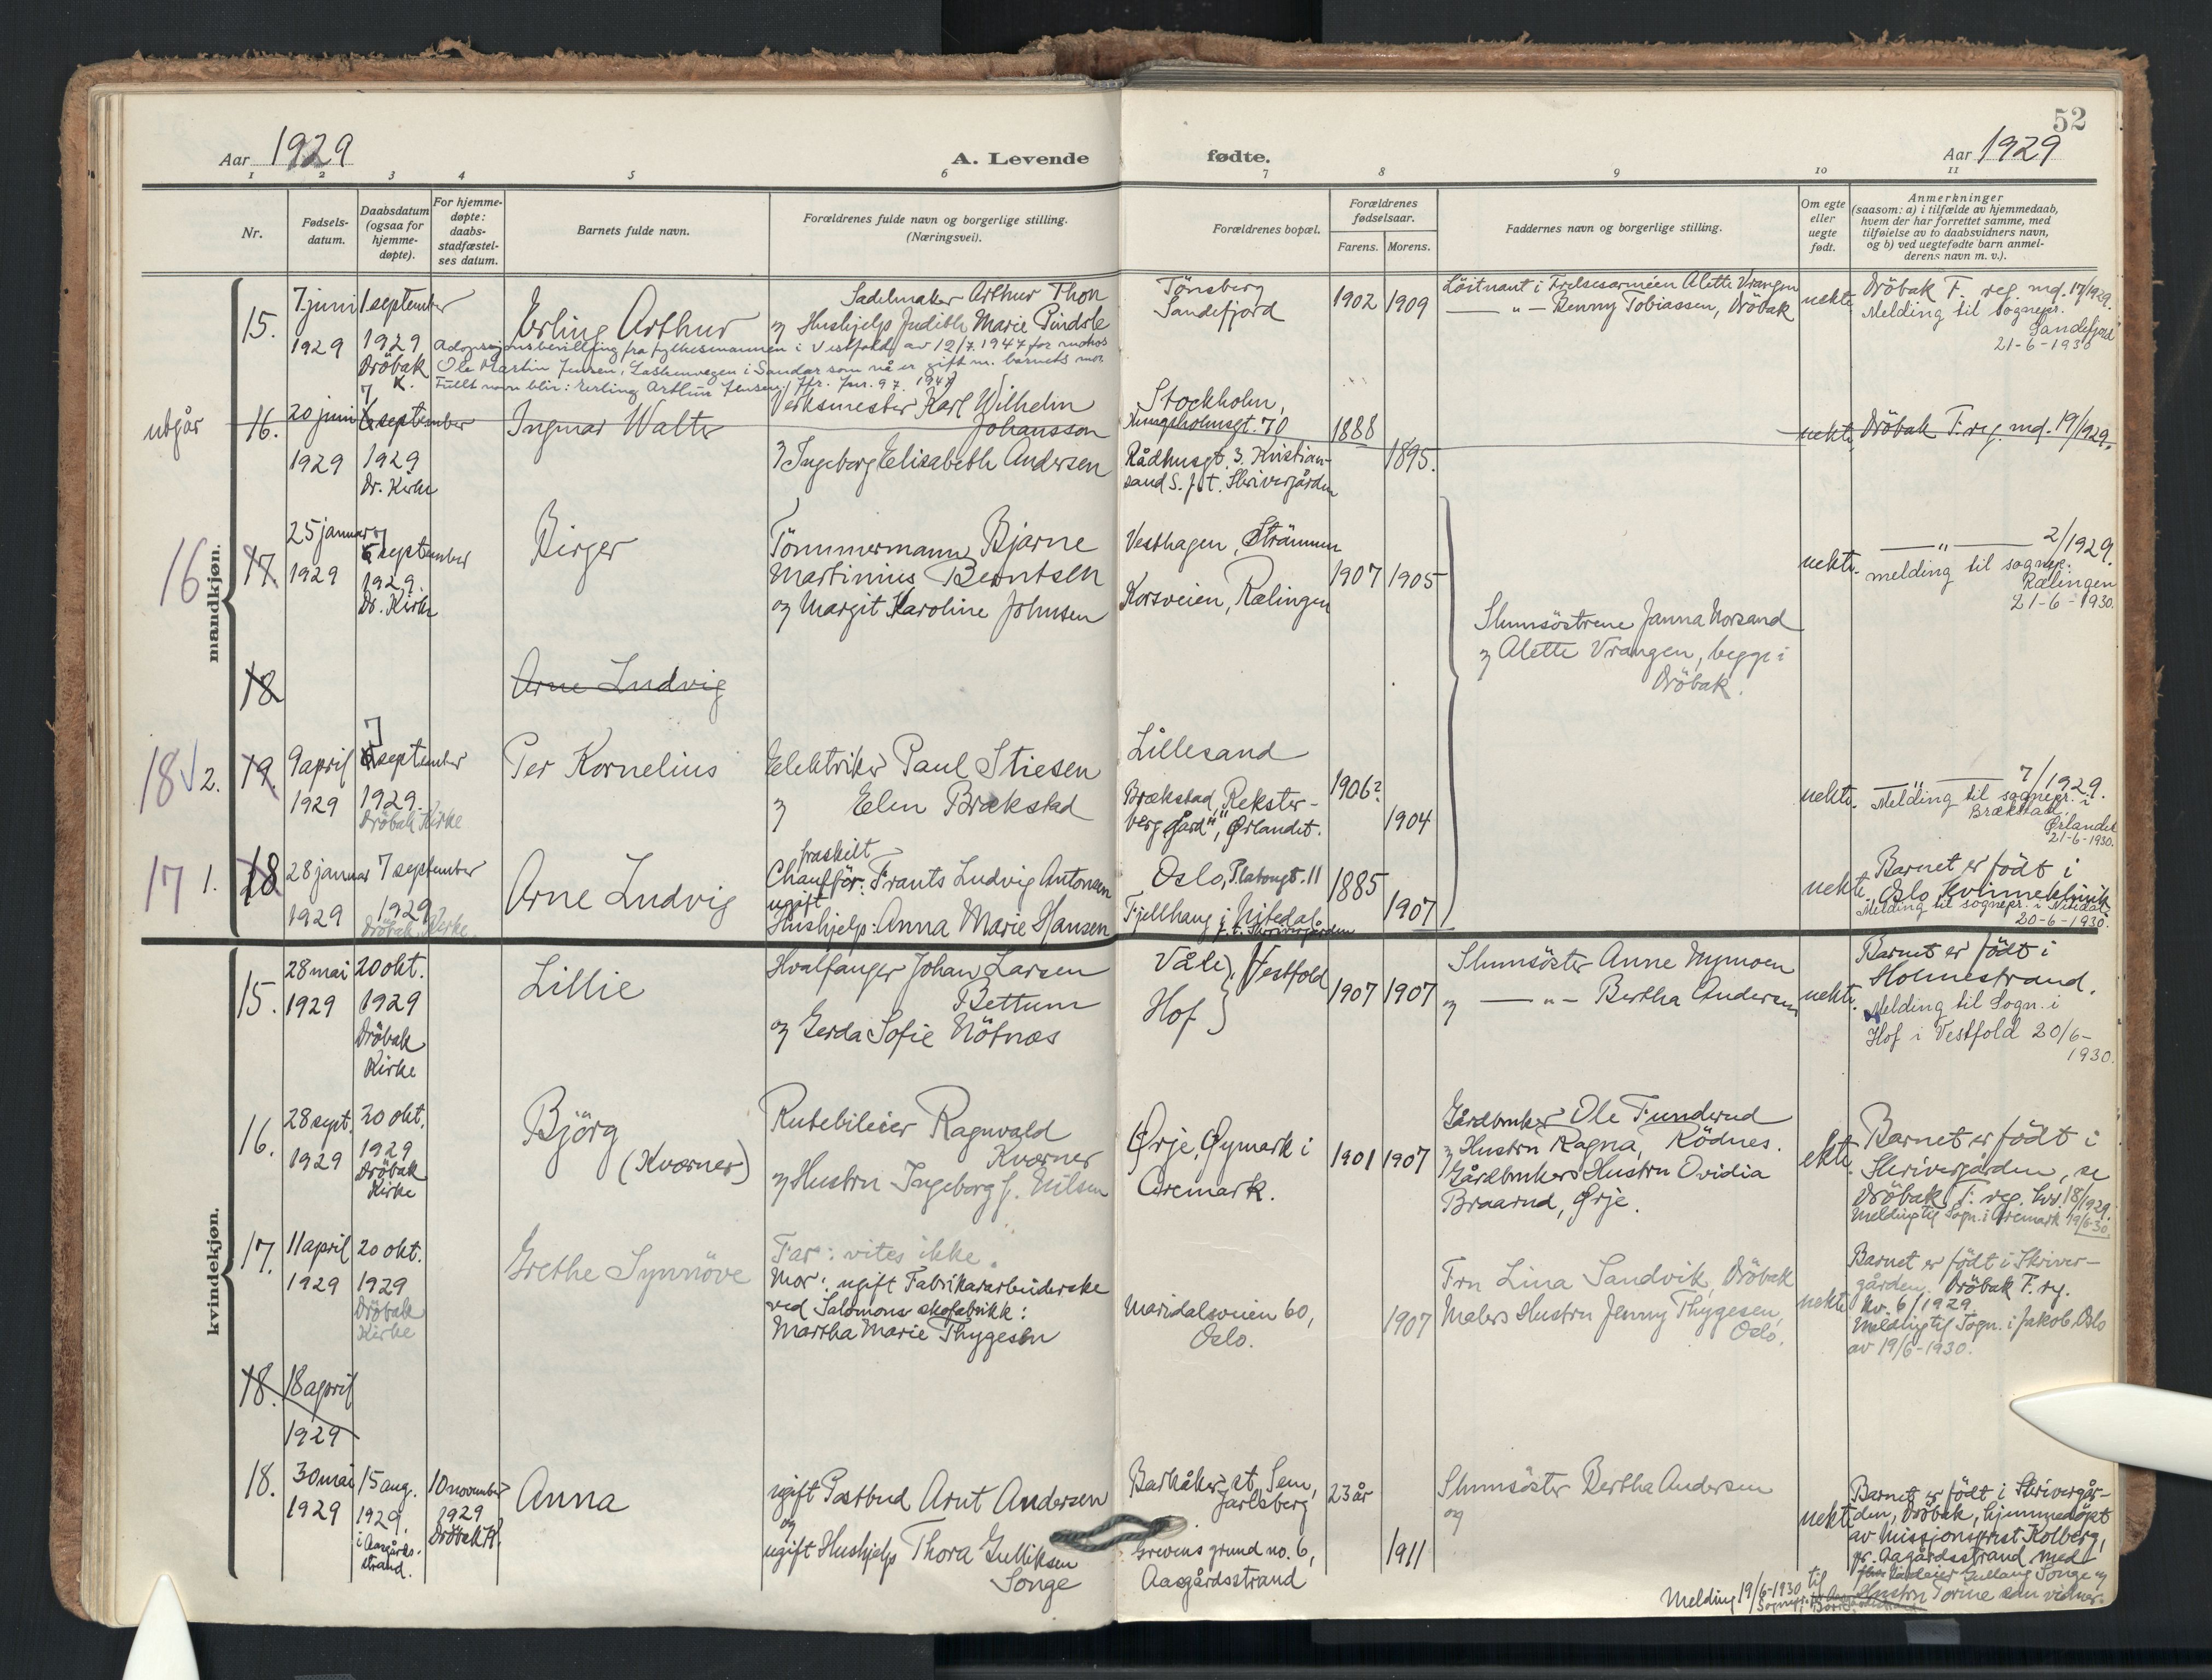 52
Aar 1929
A. Levende
fødte.
Aar 1929
1 2 3 4 5 6 7 8 9 10 11
Nr.
Fødsels-
datum.
Daabsdatum
(ogsaa for
hjemme-
døpte).
For hjemme-
døpte:
daabs-
stadfæstel-
ses datum.
Barnets fulde navn.
Forældrenes fulde navn og borgerlige stilling.
(Næringsvei).
Forældrenes bopæl.
Forældrenes
fødselsaar.
Farens. Morens.
Faddernes navn og borgerlige stilling.
Om egte
eller
uegte
født.
Anmerkninger
(saasom: a) i tilfælde av hjemmedaab,
hvem der har forrettet samme, med
tilføielse av to daabsvidners navn,
og b) ved uegtefødte barn anmel-
derens navn m. v.).
mandkjøn.
15.
7. juni
1929
1 september
1929
Dröbak
K.
Erling Arthur
Sadelmaker Arthur Thon
og Hushjelp Judith Marie Pindsle
Adopsjonsbevilling fra fylkesmannen i Vestfold av 12/7.1947 for
Ole Martin Jensen, i Sandar som nå er gift m. barnets mor
Fullt navn blir: Erling Arthur Jensen. / Jfr. Jnr. 97. 1947
Tönsberg
Sandefjord
1902 1909
Löitnant i Frelsesarméen Alette Vrangen
— " — Benny Tobiassen, Dröbak
uekte
Dröbak F. reg. md. 17/1929.
Melding til sognepr.
Sandefjord
21-6-1930
utgår
16.
20 juni
1929
7
september
1929
Dr. Kirke
Ingmar Walter
Verksmester Karl Wilhelm
Johansson
og Ingeborg Elisabeth Andersen
Stockholm,
Kungsholmsgt. 70
Rådhusgt. 3. Kristian-
sand S. f. t. Skrivergården
1888
1895.
uekte,
Dröbak F. reg. md. 19/1929.
16
17
25 januar
1929
7
september
1929.
Dr. Kirke
Birger
Tömmermann Bjarne
Martinius Berntsen
og Margit Karoline Johnsen
Vesthagen, Strömmen
Korsveien, Rælingen
1907 1905
Slumsöstrene Janna Norsand
og Alette Vrangen, begge i
Dröbak.
uekte.
— " — 2/1929.
melding til sognepr.
Rælingen
21-6-1930.
18
Arne Ludvig
18 2. 19.
9 april
1929
7
september
1929.
Dröbak Kirke
Per Kornelius
Elektriker Paul Stiesen
og Elen Brækstad
Lillesand
Brækstad, Rekster-
berg gård", Ørlandet.
1906?
1904
uekte.
— " — 7/1929.
Melding til sognepr. i
Brækstad,
Ørlandet
21-6-1930.
17 1. 18
28 januar
1929
7 september
1929
Dröbak Kirke.
Arne Ludvig
fraskilt
Chaufför: Frants Ludvig Antonsen
ugift
Hushjelp: Anna Marie Hansen
Oslo, Platougt. 11
Fjellhaug i Nitedal
f. t. Skrivergården
1885
1907
uekte
Barnet er födt i
Oslo Kvinneklinik
Melding til sognepr. i Nitedal
20-6-1930.
kvindekjøn.
15.
28 mai
1929
20 okt.
1929
Dröbak
Kirke
Lillie
Hvalfanger Johan Larsen
Bettum
og Gerda Sofie Nötnæs
Våle, Vestfold
Hof
1907 1907
Slumsöster Anne Mymoen
og — " — Bertha Andersen
uekte.
Barnet er födt i
Holmestrand.
Melding til Sogn. i
Hof i Vestfold 20/6-
1930.
16.
28 sept.
1929
20 okt.
1929
Dröbak
Kirke
Björg
(Kværner)
Rutebileier Ragnvald
Kværner
og Hustru Ingeborg f. Nilsen
Ørje, Øymark i
Aremark.
1901 1907
Gårdbruker Ole Funderud
og Hustru Ragna, Rödnes.
Gårdbrukers Hustru Ovidia
Braarud, Ørje.
ekte.
Barnet er födt i
Skrivergården, se
Dröbak F. reg. kv. 18/1929.
Melding til Sogn. i Aremark 19/6-30.
17.
11 april
1929
20 okt.
1929
Dröbak
Kirke
Grethe Synnöve
Far: vites ikke.
Mor: ugift Fabrikarbeiderske
ved Salomons skofabrikk:
Martha Marie Thygesen
Maridalsveien 60,
Oslo.
1907
Fru Lina Sandvik, Dröbak
Malers Hustru Jenny Thygesen,
Oslo.
uekte
Barnet er födt i Skriver-
gården. Dröbak F. reg.
kv. 6/1929.
Melding til Sogn. i Jakob, Oslo
av 19/6-1930.
18.
18 april
1929
18.
30 mai
1929
15 aug.
1929,
i Aasgårds-
strand.
10 november
1929
Dröbak K.
Anna
ugift Postbud Arnt Andersen
og
ugift Hushjelp Thora Gulliksen
Songe
Barkåker st. Sem,
Jarlsberg
Grevens grund no. 6,
Aasgårdsstrand
23 år
1911
Slumsöster Bertha Andersen
og
uekte
Barnet er födt i Skrivergår-
den, Dröbak, hjemmedöpt
av Missionsprest Kolberg,
pr. Aagårdsstrand med
Songe og
Hustru Torine som vidner.
Melding 19/6-1930 til